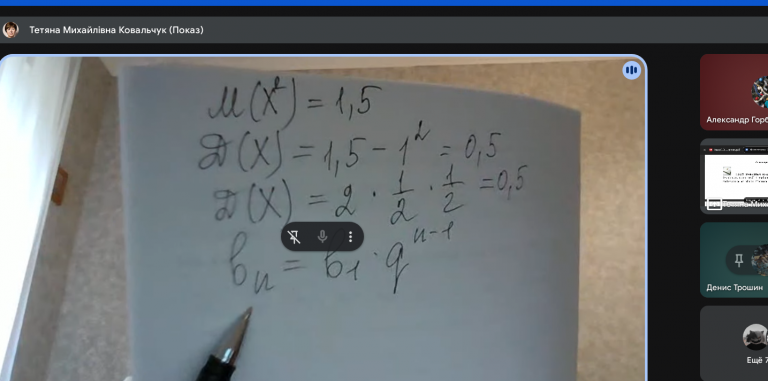 Тетяна Михайлівна Ковальчук (Показ)
M(X²) = 1,5
D(X) = 1,5 - 1² = 0,5
D(X) = 2 · 1/2 · 1/2 = 0,5
bn = b1 · q^(n-1)
Александр Горб
Денис Трошин
Ещё 7